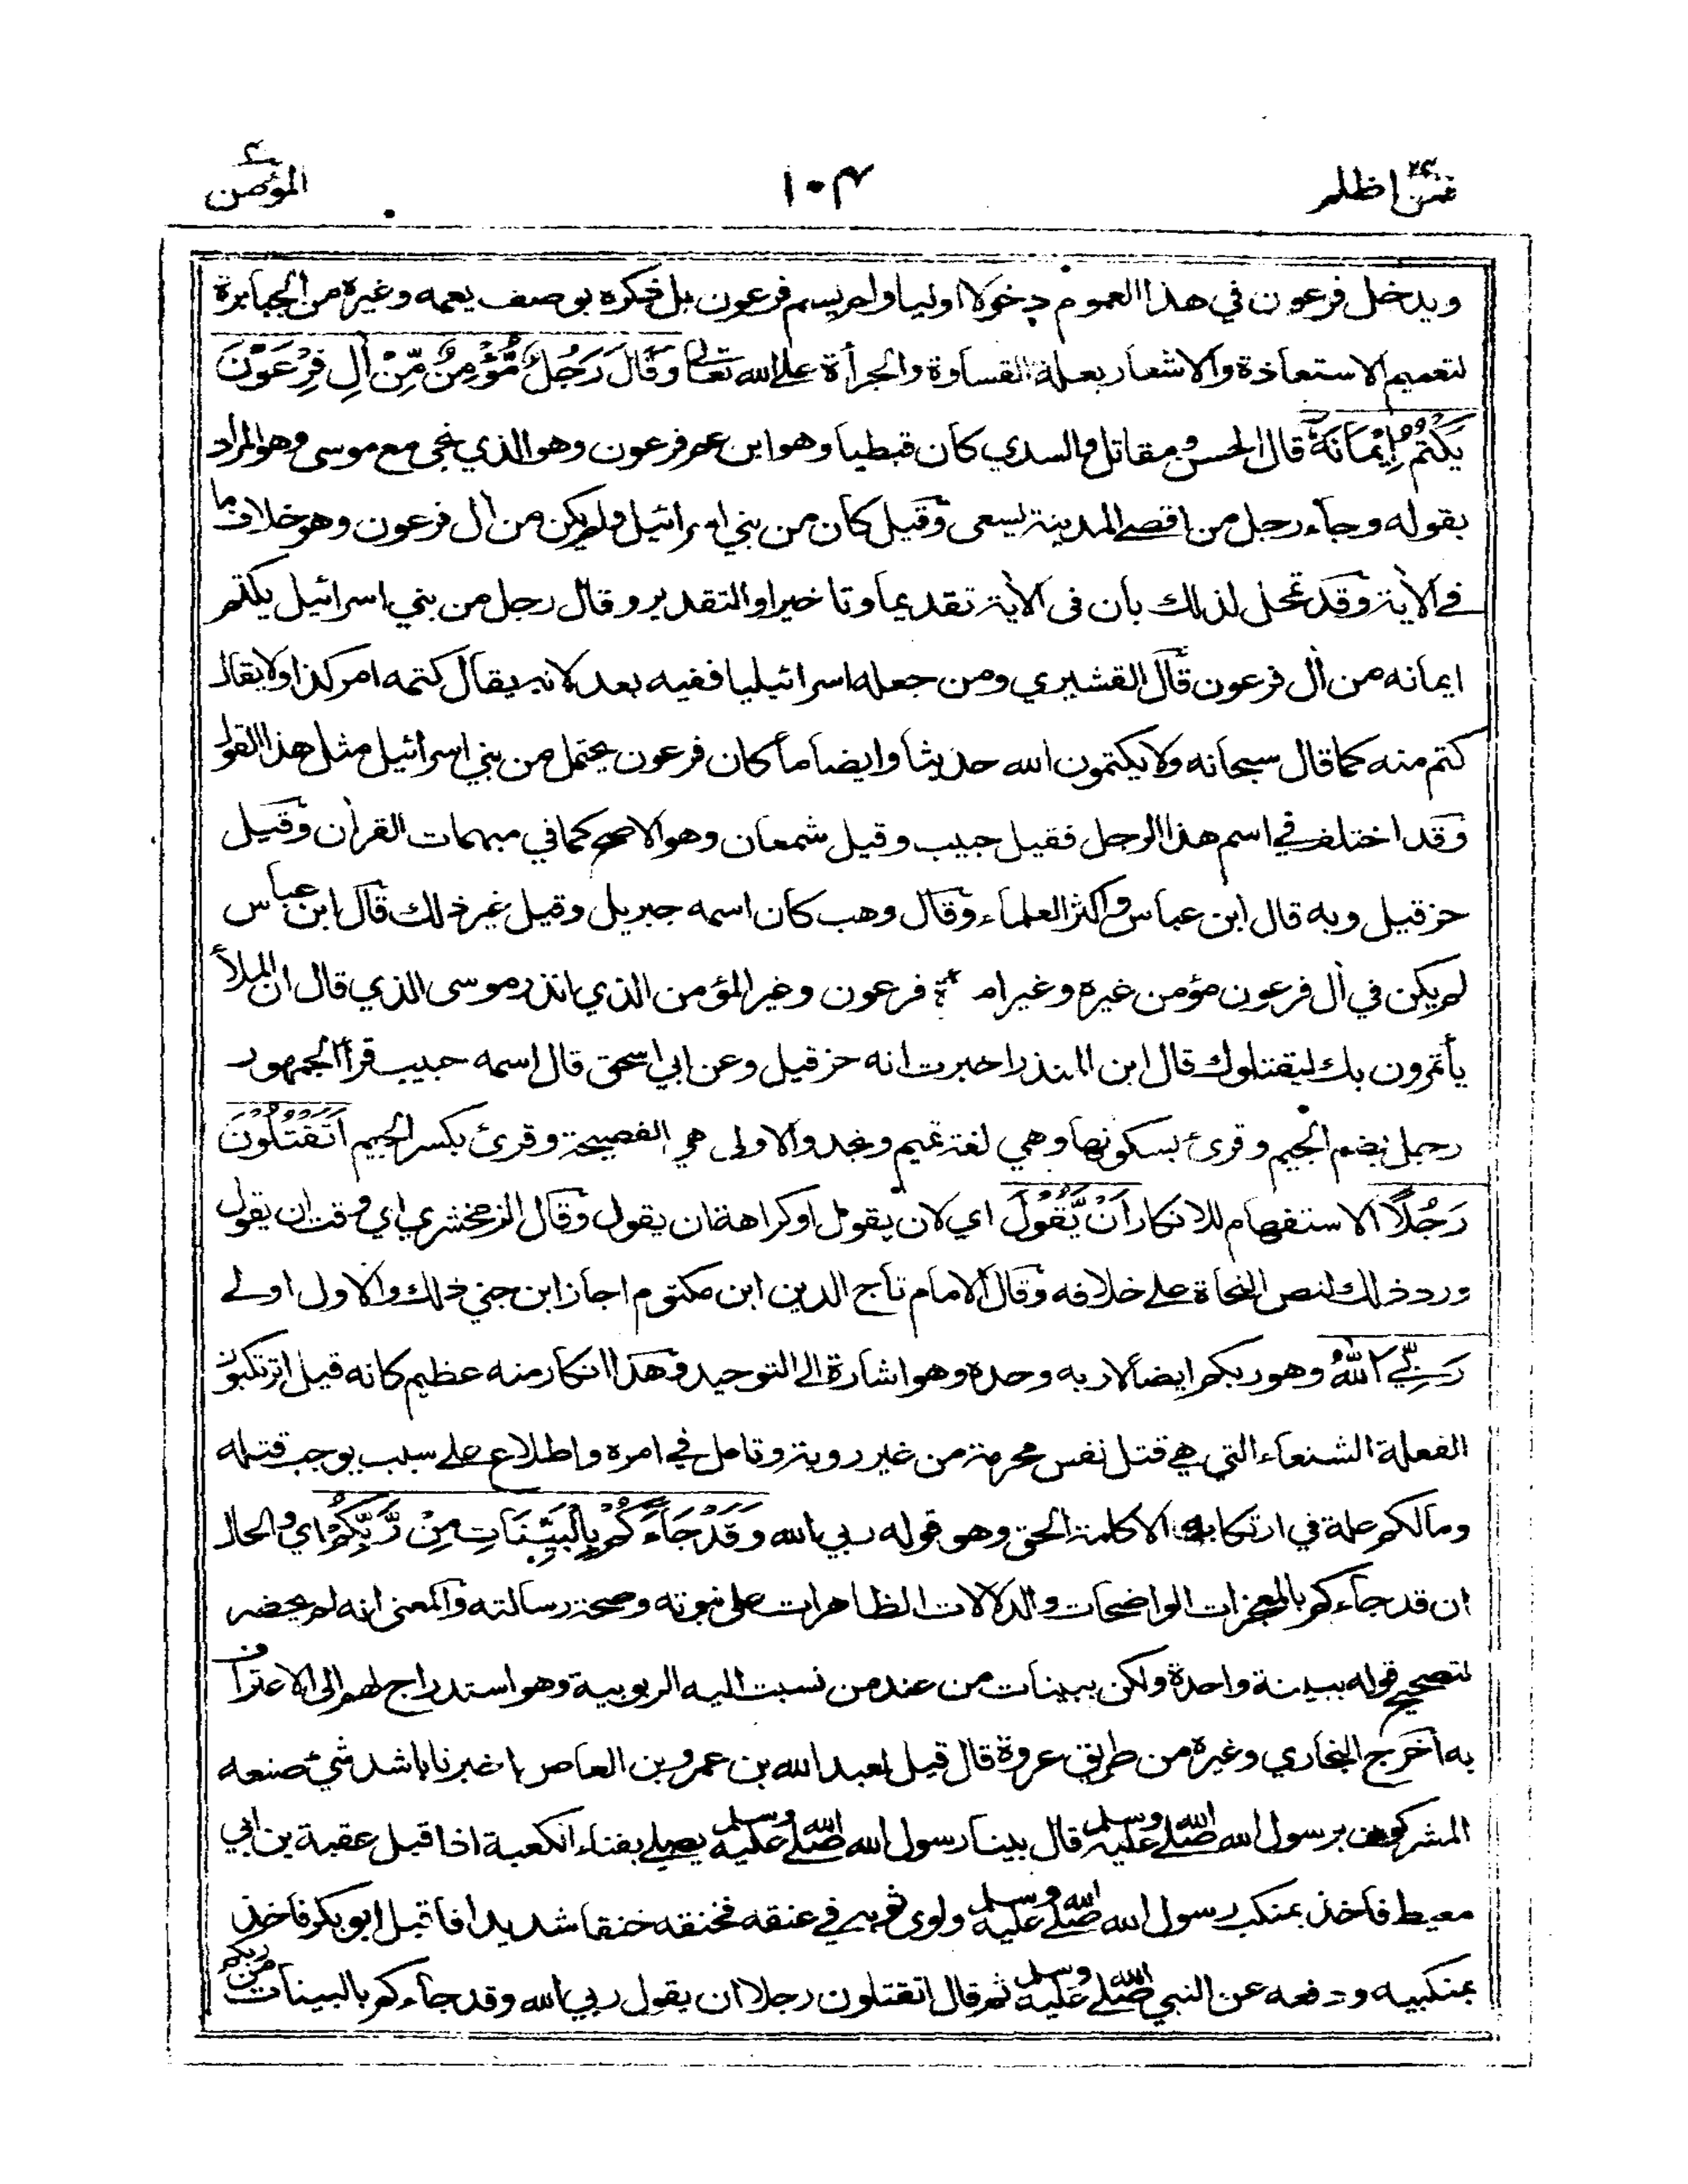 فمن اظلم ٢٤
١٠٤
المؤمن ٤٠
ويدخل فرعون في هذا العموم دخولا اوليا ولم يسم فرعون بل ذكره بوصف يعمه وغيره من الجبابرة
لتعميم الاستعاذة والاشعار بعلة القساوة والجرأة على الله تعالى وَقَالَ رَجُلٌ مُّؤْمِنٌ مِّنْ اٰلِ فِرْعَوْنَ
يَكْتُمُ اِيْمَانَهٗ قال الحسن ومقاتل والسدي كان قبطيا وهو ابن عم فرعون وهو الذي نجى مع موسى وهو المراد
بقوله وجاء رجل من اقصى المدينة يسعى وقيل كان من بني اسرائيل ولم يكن من اٰل فرعون وهو خلاف ما
في الاٰية وقد تمحل لذلك بان في الاٰية تقديما وتاخيرا والتقدير وقال رجل من بني اسرائيل يكتم
ايمانه من اٰل فرعون قال القشيري ومن جعله اسرائيليا ففيه بعد لانه يقال كتمه امر كذا ولا يقال
كتم منه كما قال سبحانه ولا يكتمون الله حديثا وايضا ما كان فرعون يحتمل من بني اسرائيل مثل هذا القول
وقد اختلف في اسم هذا الرجل فقيل حبيب وقيل شمعان وهو الاصح كما في مبهمات القراٰن وقيل
حزقيل وبه قال ابن عباس واكثر العلماء وقال وهب كان اسمه جبريل وقيل غير ذلك قال ابن عباس
لم يكن في اٰل فرعون مؤمن غيره وغير امرأة فرعون وغير المؤمن الذي انذر موسى الذي قال ان الملأ
يأتمرون بك ليقتلوك قال ابن المنذر اخبرت انه حزقيل وعن ابي اسحق قال اسمه حبيب قرأ الجمهور
رجل بضم الجيم وقرئ بسكونها وهي لغة تميم ونجد والاولى هي الفصيحة وقرئ بكسر الجيم اَتَقْتُلُوْنَ
رَجُلًا الاستفهام للانكار اَنْ يَّقُوْلَ اي لان يقول او كراهة ان يقول وقال الزمخشري اي وقت ان يقول
ورد ذلك لنص النحاة على خلافه وقال الامام تاج الدين ابن مكتوم اجاز ابن جني ذلك والاول اولى
رَبِّيَ اللّٰهُ وهو ربكم ايضا لا ربه وحده وهو اشارة الى التوحيد وهذا انكار منه عظيم كانه قيل اترتكبون
الفعلة الشنعاء التي هي قتل نفس محرمة من غير روية وتامل في امره واطلاع على سبب يوجب قتله
وما لكم علة في ارتكابه الا كلمة الحق وهو قوله ربي الله وَقَدْ جَآءَكُمْ بِالْبَيِّنَاتِ مِنْ رَّبِّكُمْ اي والحال
ان قد جاءكم بالمعجزات الواضحات والدلالات الظاهرات على نبوته وصحة رسالته والمعنى انه لم يحضر
لتصحيح قوله ببينة واحدة ولكن ببينات من عند من نسبت اليه الربوبية وهو استدراج لهم الى الاعتراف
به أخرج البخاري وغيره من طريق عروة قال قيل لعبد الله بن عمرو بن العاص اخبرنا باشد شيء صنعه
المشركون برسول الله صلى الله عليه وسلم قال بينا رسول الله صلى الله عليه وسلم يصلي بفناء الكعبة اذ اقبل عقبة بن ابي
معيط فاخذ بمنكب رسول الله صلى الله عليه وسلم ولوى ثوبه في عنقه فخنقه خنقا شديدا فاقبل ابو بكر فاخذ
بمنكبيه ودفعه عن النبي صلى الله عليه وسلم ثم قال اتقتلون رجلا ان يقول ربي الله وقد جاءكم بالبينات من ربكم